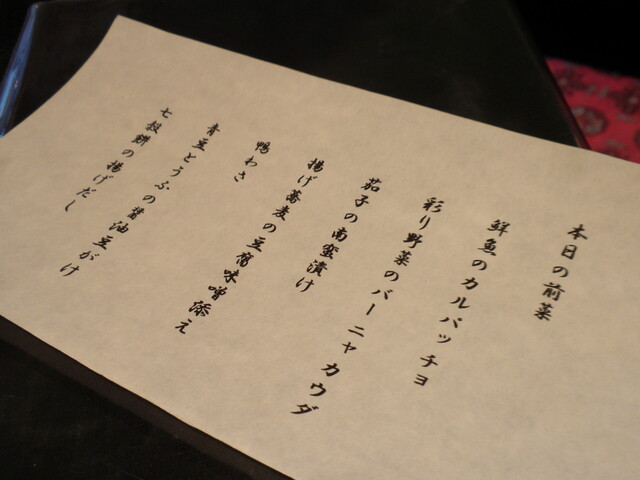 本日の前菜
鮮魚のカルパッチョ
彩り野菜のバーニャカウダ
茄子の南蛮漬け
揚げ蕎麦の豆腐味噌添え
鴨わさ
青豆とうふの醤油豆がけ
七穀餅の揚げだし